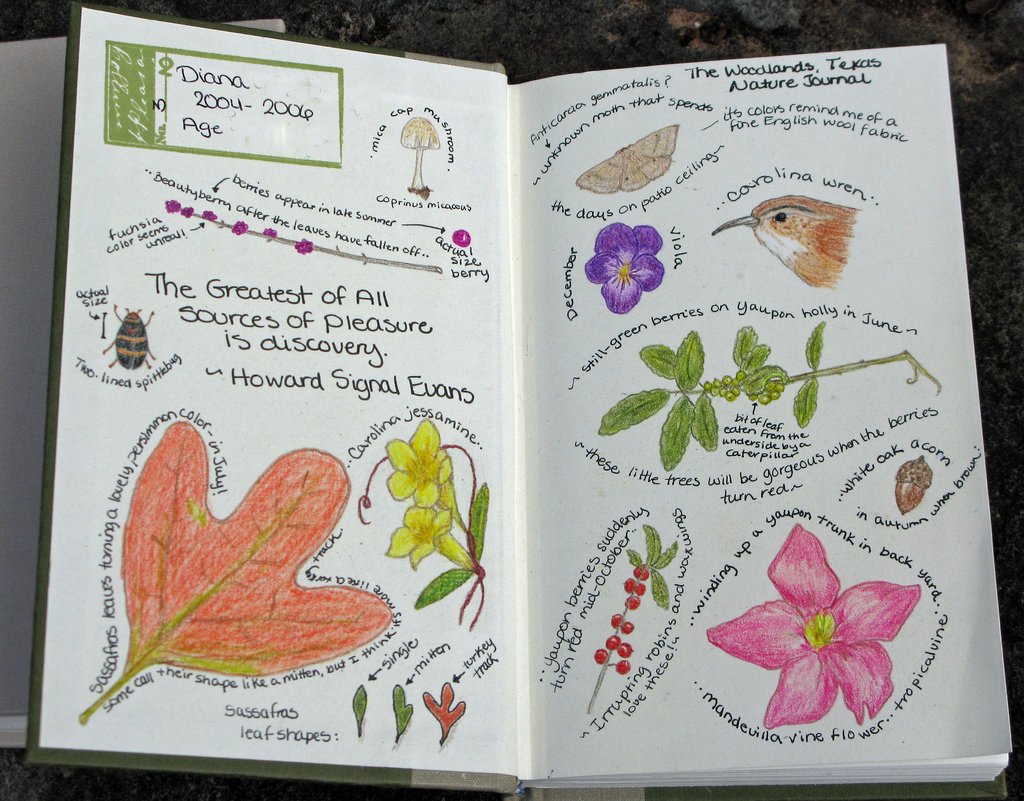 Diana
2004-2006
Age
No
mica cap mushroom
coprinus micaceus
berries appear in late summer
..Beautyberry after the leaves have fallen off..
fuchsia
color seems
unreal!
actual
size
berry
The Greatest of All
Sources of Pleasure
is discovery.
~ Howard Signal Evans
actual
size
Two-lined spittlebug
Carolina jessamine..
Sassafras leaves turning a lovely, persimmon color in July!
some call their shape like a mitten, but I think it's more like a turkey track
single
mitten
turkey
track
sassafras
leaf shapes:
The Woodlands, Texas
Nature Journal
Anticarsia gemmatalis?
~ unknown moth that spends
the days on patio ceiling~
its colors remind me of a
fine English wool fabric
..Carolina wren..
December
viola
~ still-green berries on yaupon holly in June~
bit of leaf
eaten from the
underside by a
caterpillar
~ these little trees will be gorgeous when the berries
turn red~
..white oak acorn
in autumn when brown..
..yaupon berries suddenly
turn red mid-october..
~ Irrupting robins and waxwings
love these!
..winding up a yaupon trunk in back yard..
..mandevilla-vine flower...tropical vine